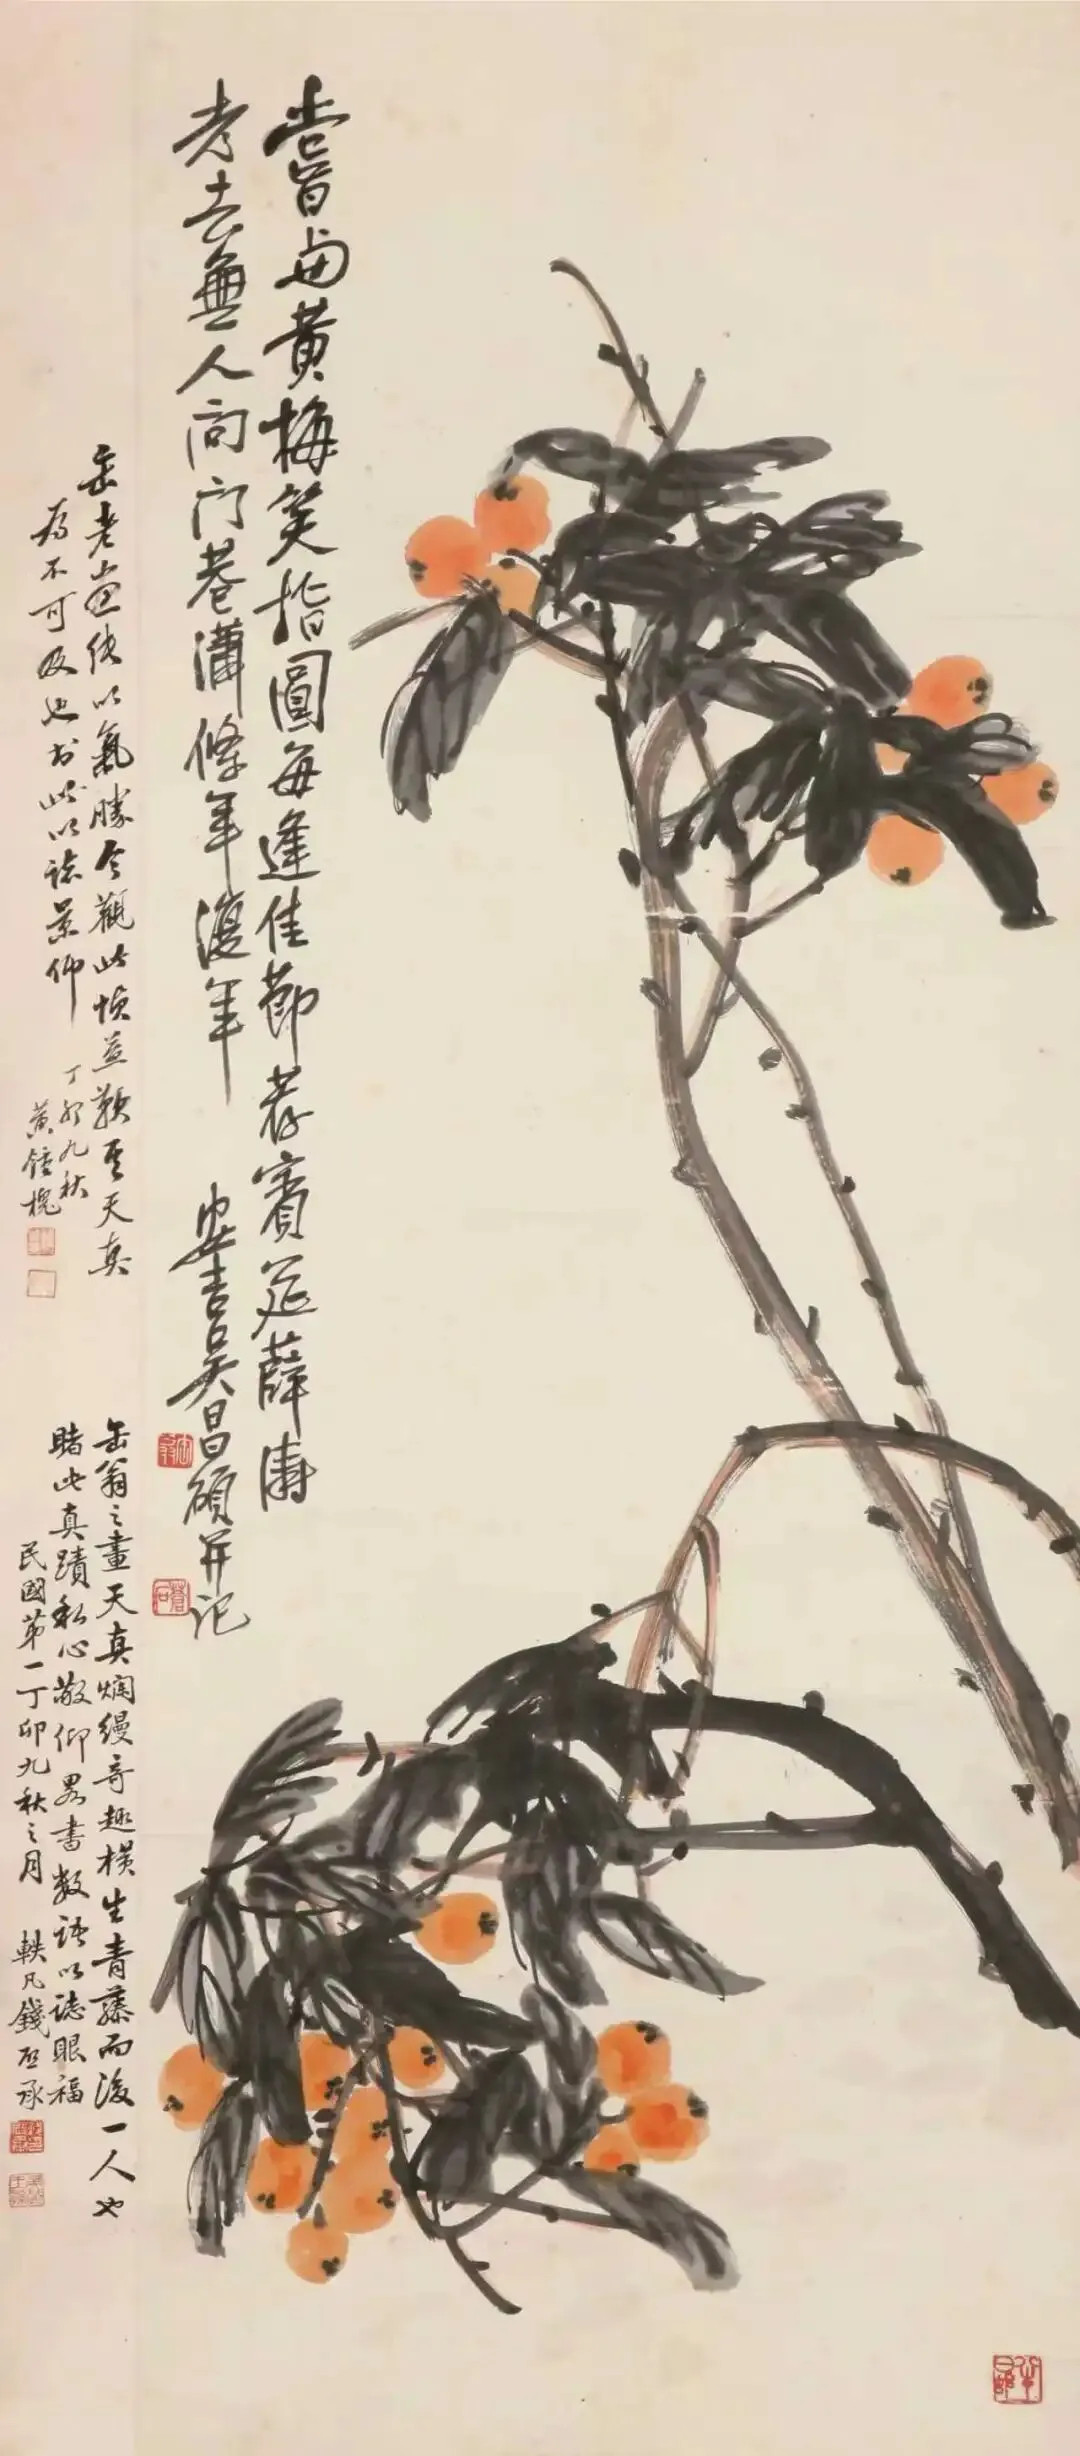 嘗黃梅笑指圓每逢佳節荐賓筵薛濤
老去無人問門巷瀟條年復年
安吉吳昌碩并記
缶翁
蒼石
缶老畫純以氣勝今觀此幀益歎其天真
為不可及也書此以誌景仰
丁卯九秋
黃鍾槐
缶翁之畫天真爛縵奇趣橫生青藤而後一人也
睹此真蹟私心敬仰畧書數語以誌眼福
民國第一丁卯九秋之月 軼凡錢承
半日邨